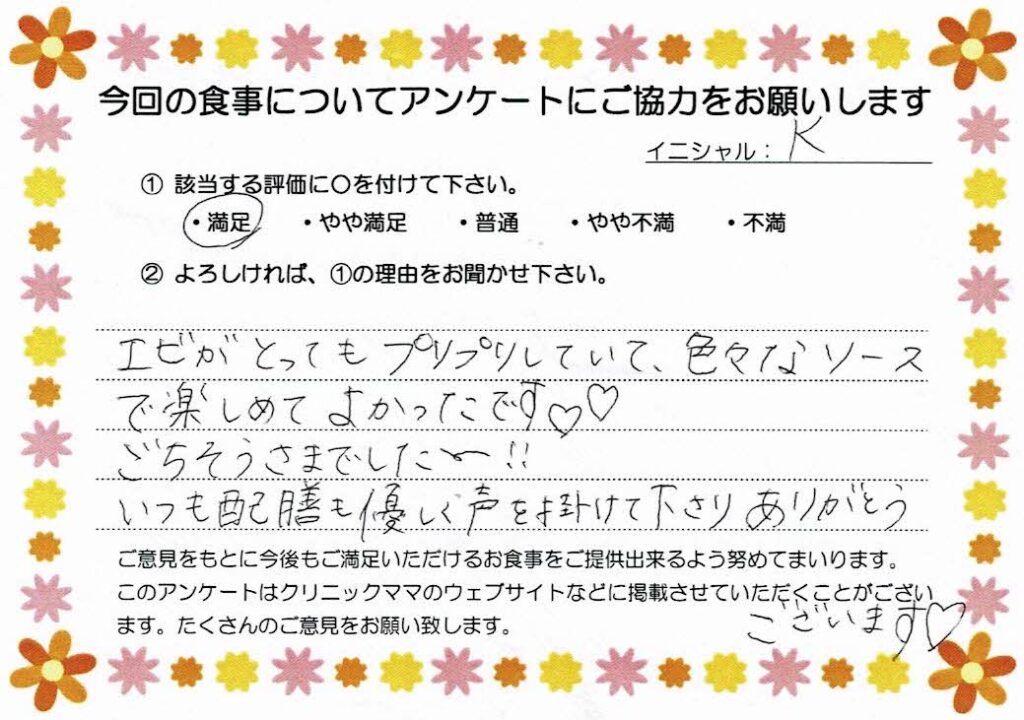 今回の食事についてアンケートにご協力をお願いします
イニシャル：K
① 該当する評価に〇を付けて下さい。
・満足 ・やや満足 ・普通 ・やや不満 ・不満
② よろしければ、①の理由をお聞かせ下さい。
エビがとってもプリプリしていて、色々なソース
で楽しめてよかったです♡♡
ごちそうさまでしたー!!
いつも配膳も優しく声を掛けて下さりありがとう
ございます♡
ご意見をもとに今後もご満足いただけるお食事をご提供出来るよう努めてまいります。
このアンケートはクリニックママのウェブサイトなどに掲載させていただくことがござい
ます。たくさんのご意見をお願い致します。